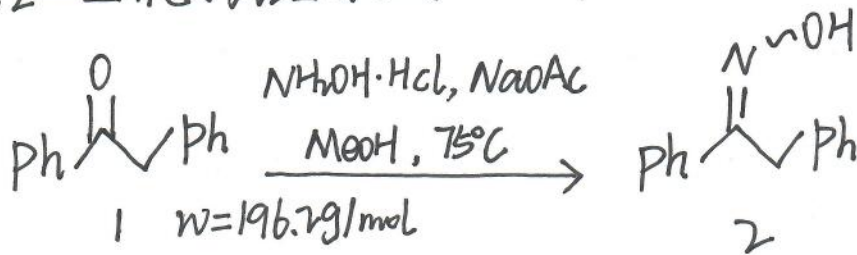 O
Ph
Ph
1
W=196.2g/mol
NH2OH·HCl, NaOAc
MeOH, 75°C
N~OH
Ph
Ph
2